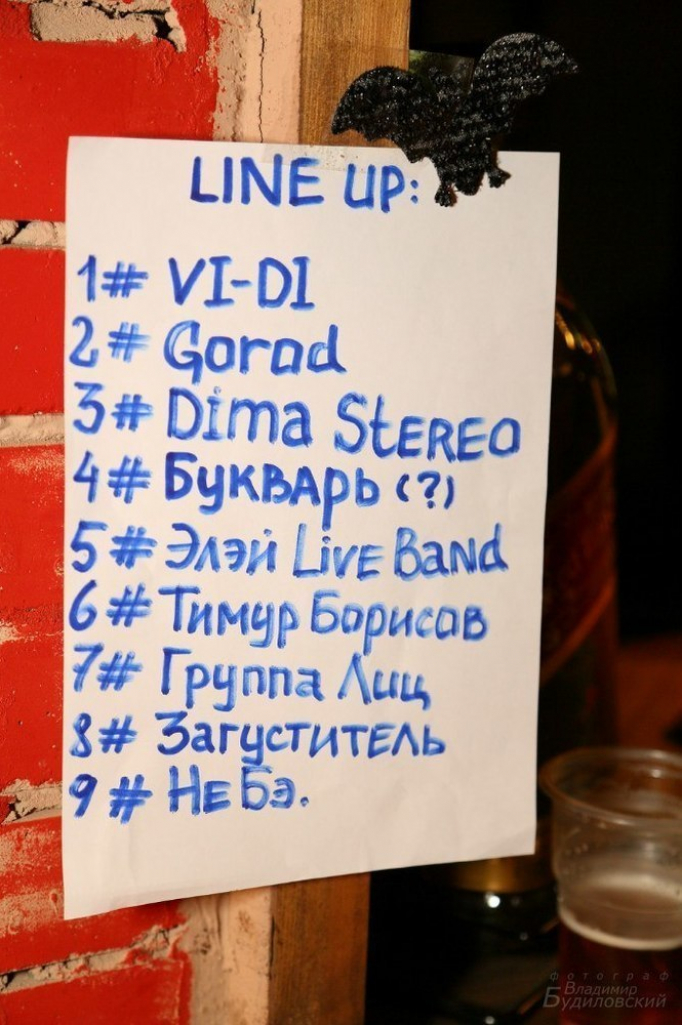 LINE UP:
1# VI-DI
2# Gorod
3# Dima StEREO
4# Букварь (?)
5# Элэй LivE BaNd
6# Тимур Борисов
7# Группа Лиц
8# Загуститель
9# Не Бэ.
фотограф
Владимир
Будиловский